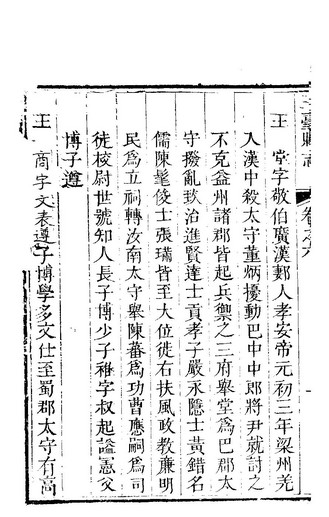 三臺縣志 卷之六
王 堂字敬伯廣漢郪人孝安帝元初三年梁州羌
入漢中殺太守董炳擾動巴中中郎將尹就討之
不克益州諸郡皆起兵禦之三府舉堂為巴郡太
守撥亂致治進賢達士貢孝子嚴永隱士黃錯名
儒陳髦俊士張璊皆至大位徙右扶風政教廉明
民為立祠轉汝南太守舉陳蕃為功曹應嗣為司
徒棱尉世號知人長子博少子稚字叔起謚憲父
博子遵
王 商字文表遵子博學多文仕至蜀郡太守有高